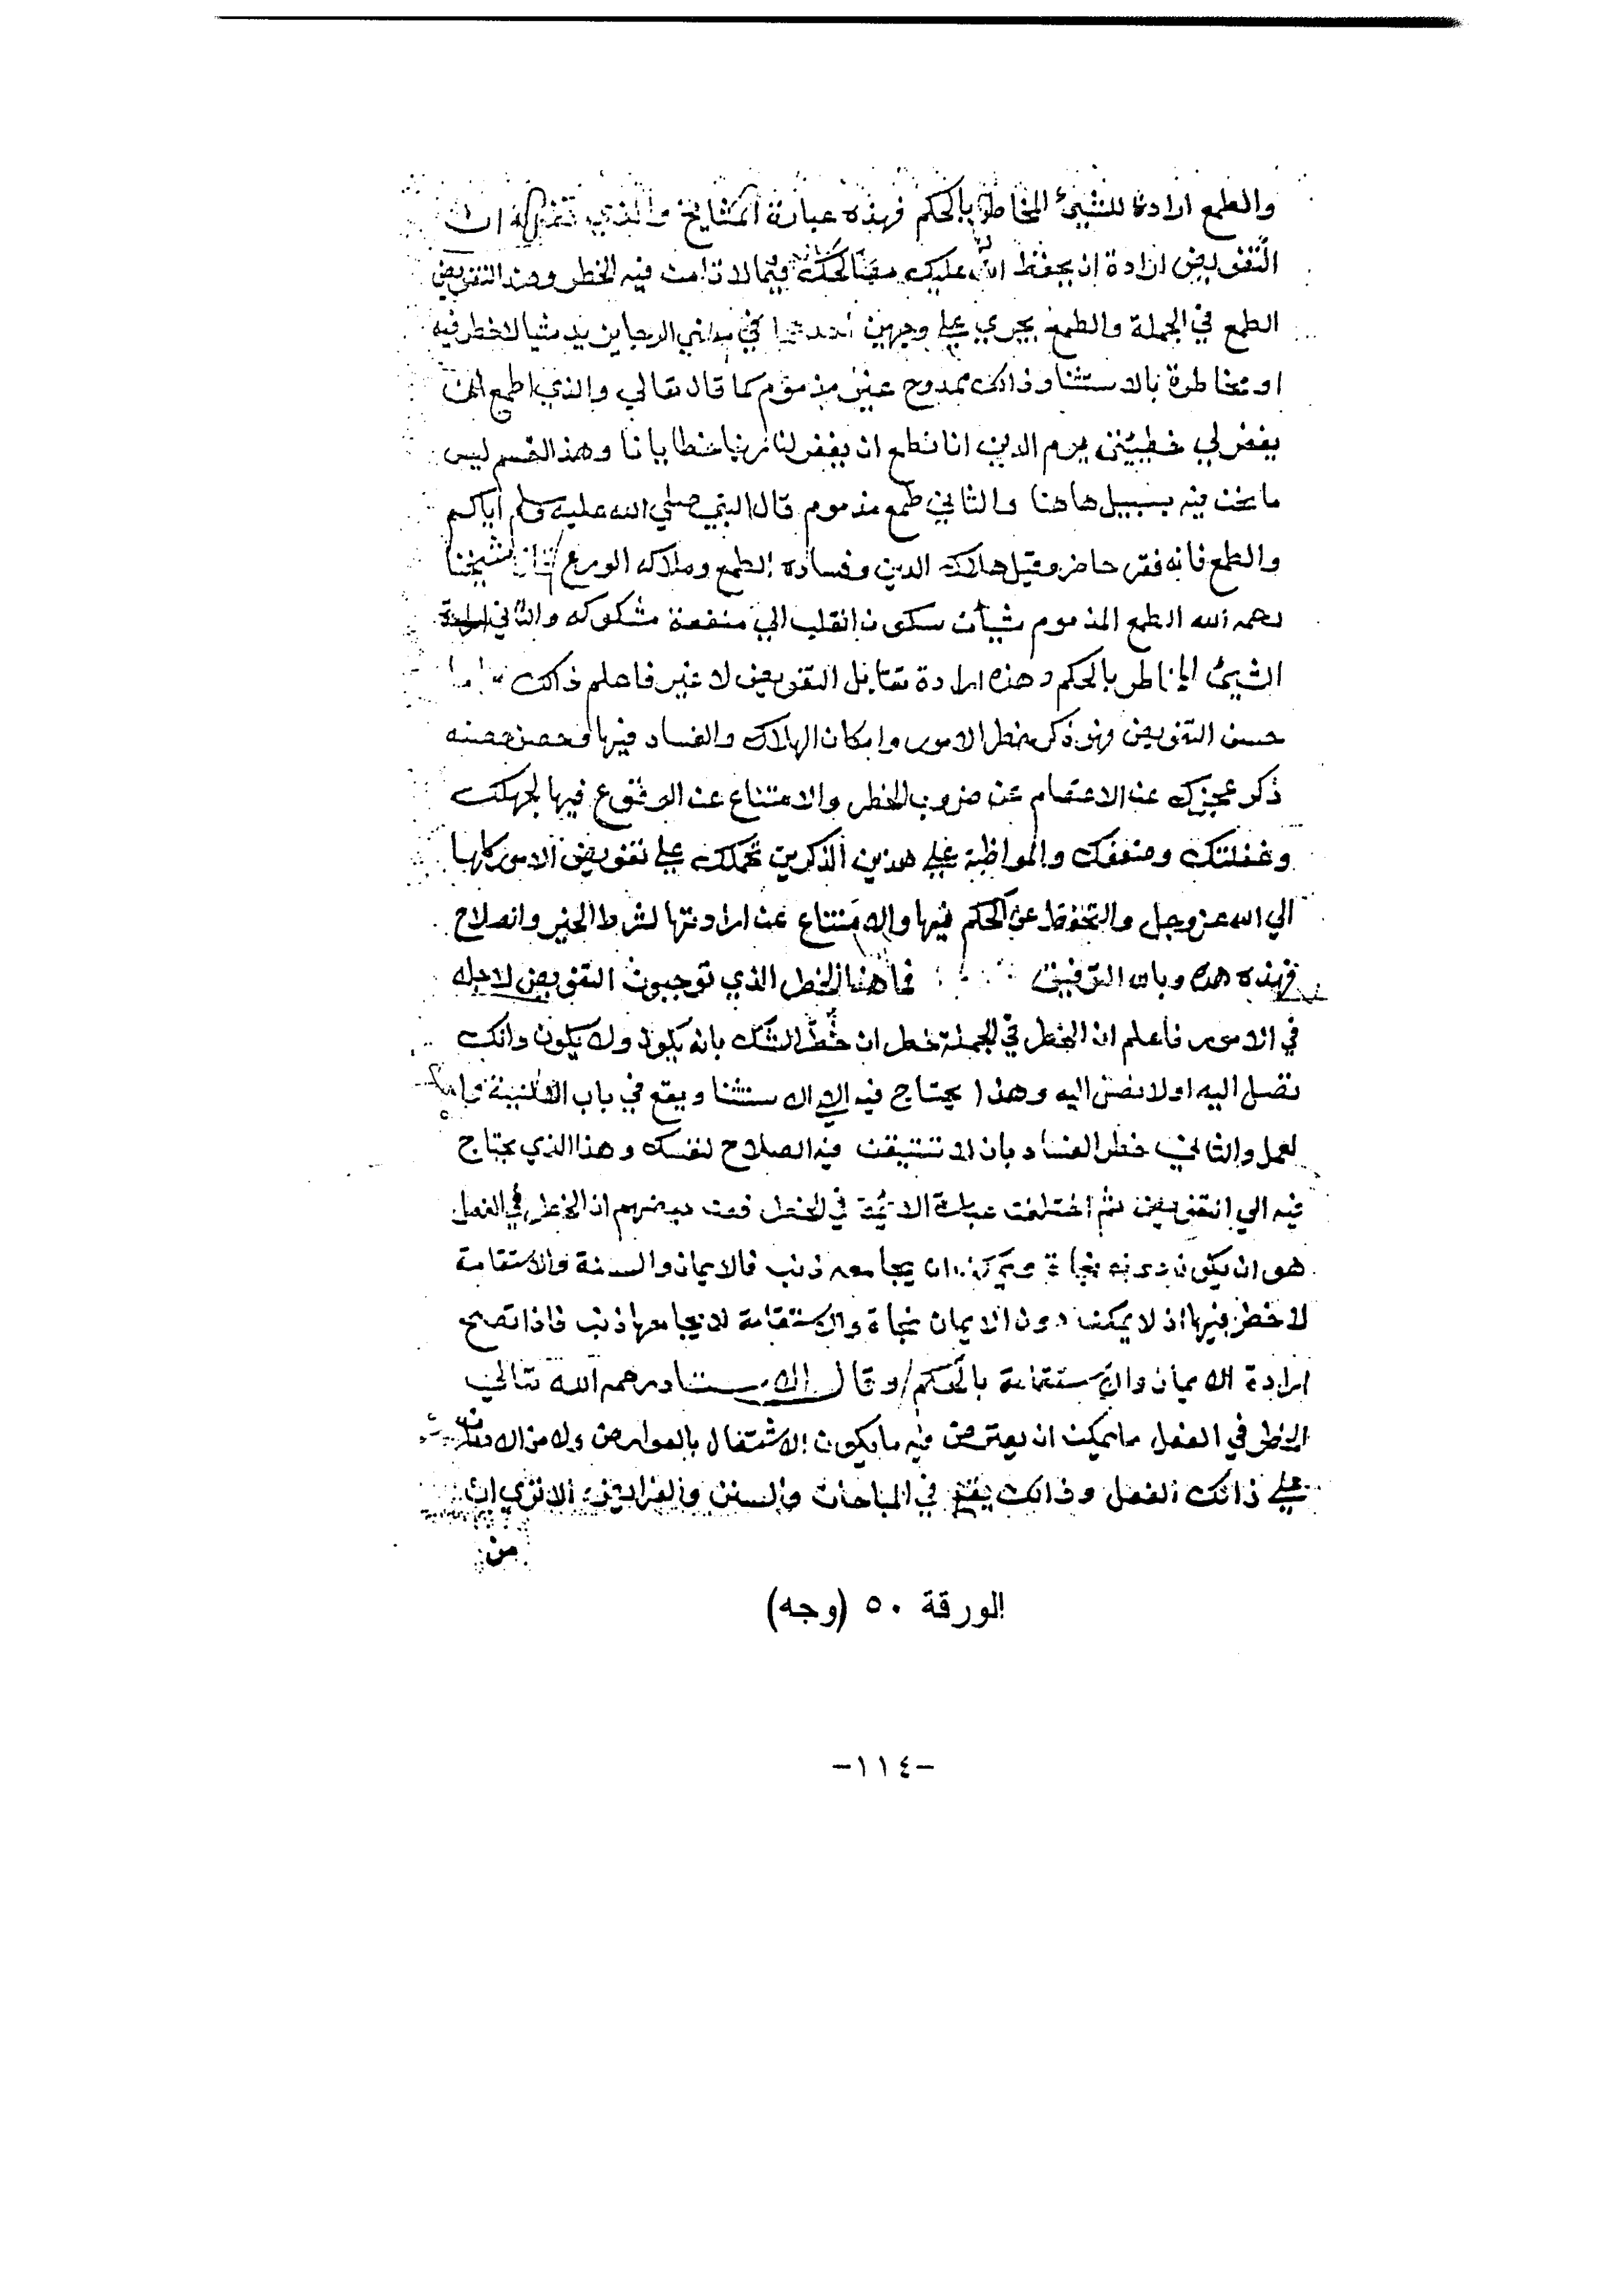 والطمع ارادة للشيئ المخاطر بالحكم فهذه عبارة المشايخ والذي نقوله ان
التفويض ارادة ان يحفظ الله عليك مصالحك فيما لا تامن فيه الخطر وضد التفويض
الطمع في الجملة والطمع يجري علي وجهين احدهما في معني الرجا يريد شيا لا خطر فيه
او مخاطرة بالاستثنا وذالك ممدوح غير مذموم كما قال تعالي والذي اطمع ان
يغفر لي خطيئتي يوم الدين انا نطمع ان يغفر لنا ربنا خطايانا وهذ القسم ليس
ما نحن فيه بسبيل هاهنا والثاني طمع مذموم قال النبي صلي الله عليه وسلم اياكم
والطمع فانه فقر حاضر وقيل هلاك الدين وفساده الطمع وملاكه الورع قال شيخنا
رحمه الله الطمع المذموم شيأن سكون القلب الي منفعة مشكوكه والثاني ارادة
الشيئ المخاطر بالحكم وهذه ارادة تقابل التفويض لا غير فاعلم ذالك واما
حصن التفويض فهو ذكر خطر الامور وامكان الهلاك والفساد فيها وحصن حصنه
ذكر عجزك عن الاعتصام عن ضروب الخطر والامتناع عن الوقوع فيها لجهلك
وغفلتك وضعفك والمواظبة علي هذين الذكرين تحملك علي تفويض الامور كلها
الي الله عز وجل والتحفظ عن الحكم فيها والامتناع عن ارادتها لشرط الخير والصلاح
فهذه هذه وبالله التوفيق فما هذا الخطر الذي توجبون التفويض لاجله
في الامور فاعلم ان الخطر في الجملة خطران خطر الشك بانه يكون ولا يكون وانك
تصل اليه اولا تصل اليه وهذا يحتاج فيه الي الاستثنا ويقع في باب النية والامل
لعمل والثاني خطر الفساد بان لا تستيقن فيه الصلاح لنفسك وهذا الذي يحتاج
فيه الي التفويض ثم اختلفت عبارة الائمة في الخطر فعن بعضهم ان الخطر في الفعل
هو ان يكون دونه نجاة ويمكن ان يجامعه ذنب فالايمان والسنة والاستقامة
لا خطر فيها اذ لا يمكن دون الايمان نجاة والاستقامة لا يجامعها ذنب فاذا تصح
ارادة الايمان والاستقامة بالحكم وقال الاستاد رحمه الله تعالي
الخطر في الفعل ما يمكن ان يعترض فيه ما يكون الاشتغال بالعوارض اولا من الاقدام
علي ذالك الفعل وذالك يقع في المباحات والسنن والفرايض الا تري ان
من
الورقة ٥٠ (وجه)
-١١٤-